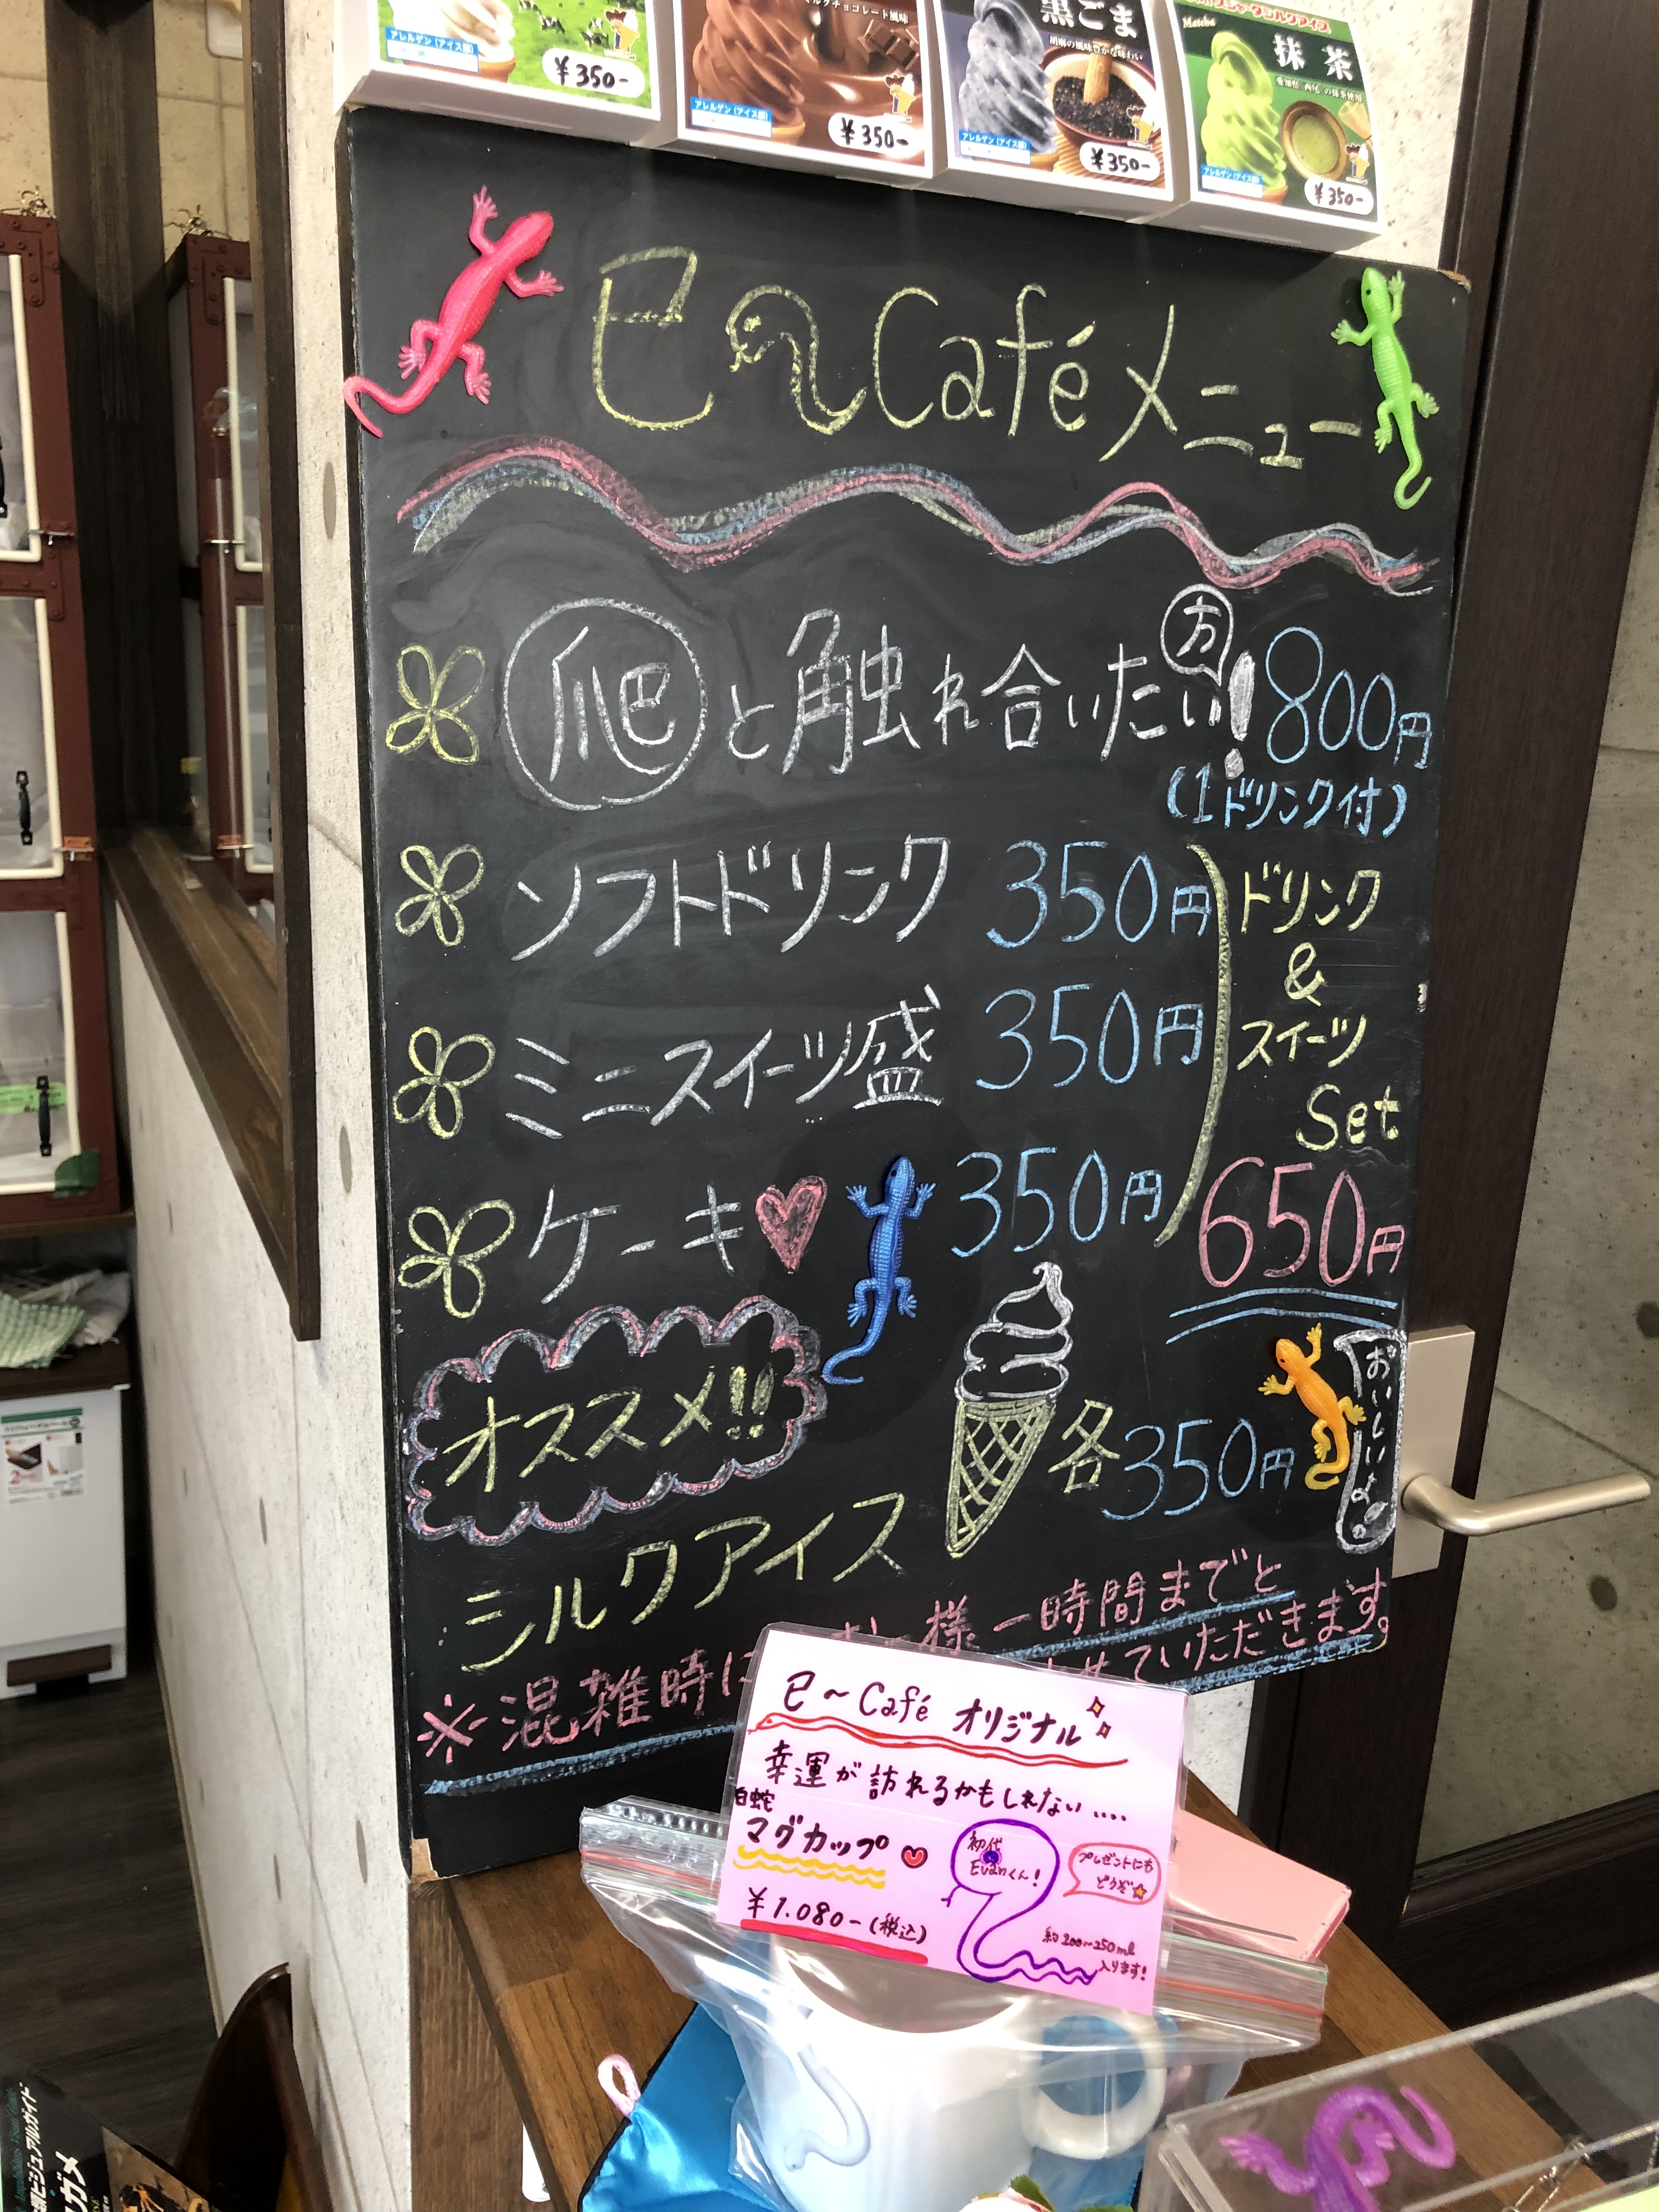 アレルゲン(アイス部)
¥350-
ミルクチョコレート風味
アレルゲン(アイス部)
¥350-
黒ごま
胡麻の風味豊かな味わい
アレルゲン(アイス部)
¥350-
Matcha
抹茶
愛知県 西尾の抹茶使用
アレルゲン(アイス部)
¥350-
巳〜Caféメニュー
爬と触れ合いたい方! 800円
(1ドリンク付)
ソフトドリンク 350円
ミニスイーツ盛 350円
ケーキ 350円
ドリンク
&
スイーツ
Set
650円
オススメ!!
シルクアイス
各350円
おいしいよ♪
※混雑時に 様一時間までと
せていただきます。
巳〜Café オリジナル
幸運が訪れるかもしれない....
白蛇
マグカップ
¥1.080-(税込)
初代
Evanくん!
プレゼントにも
どうぞ
約200~250ml
入ります!